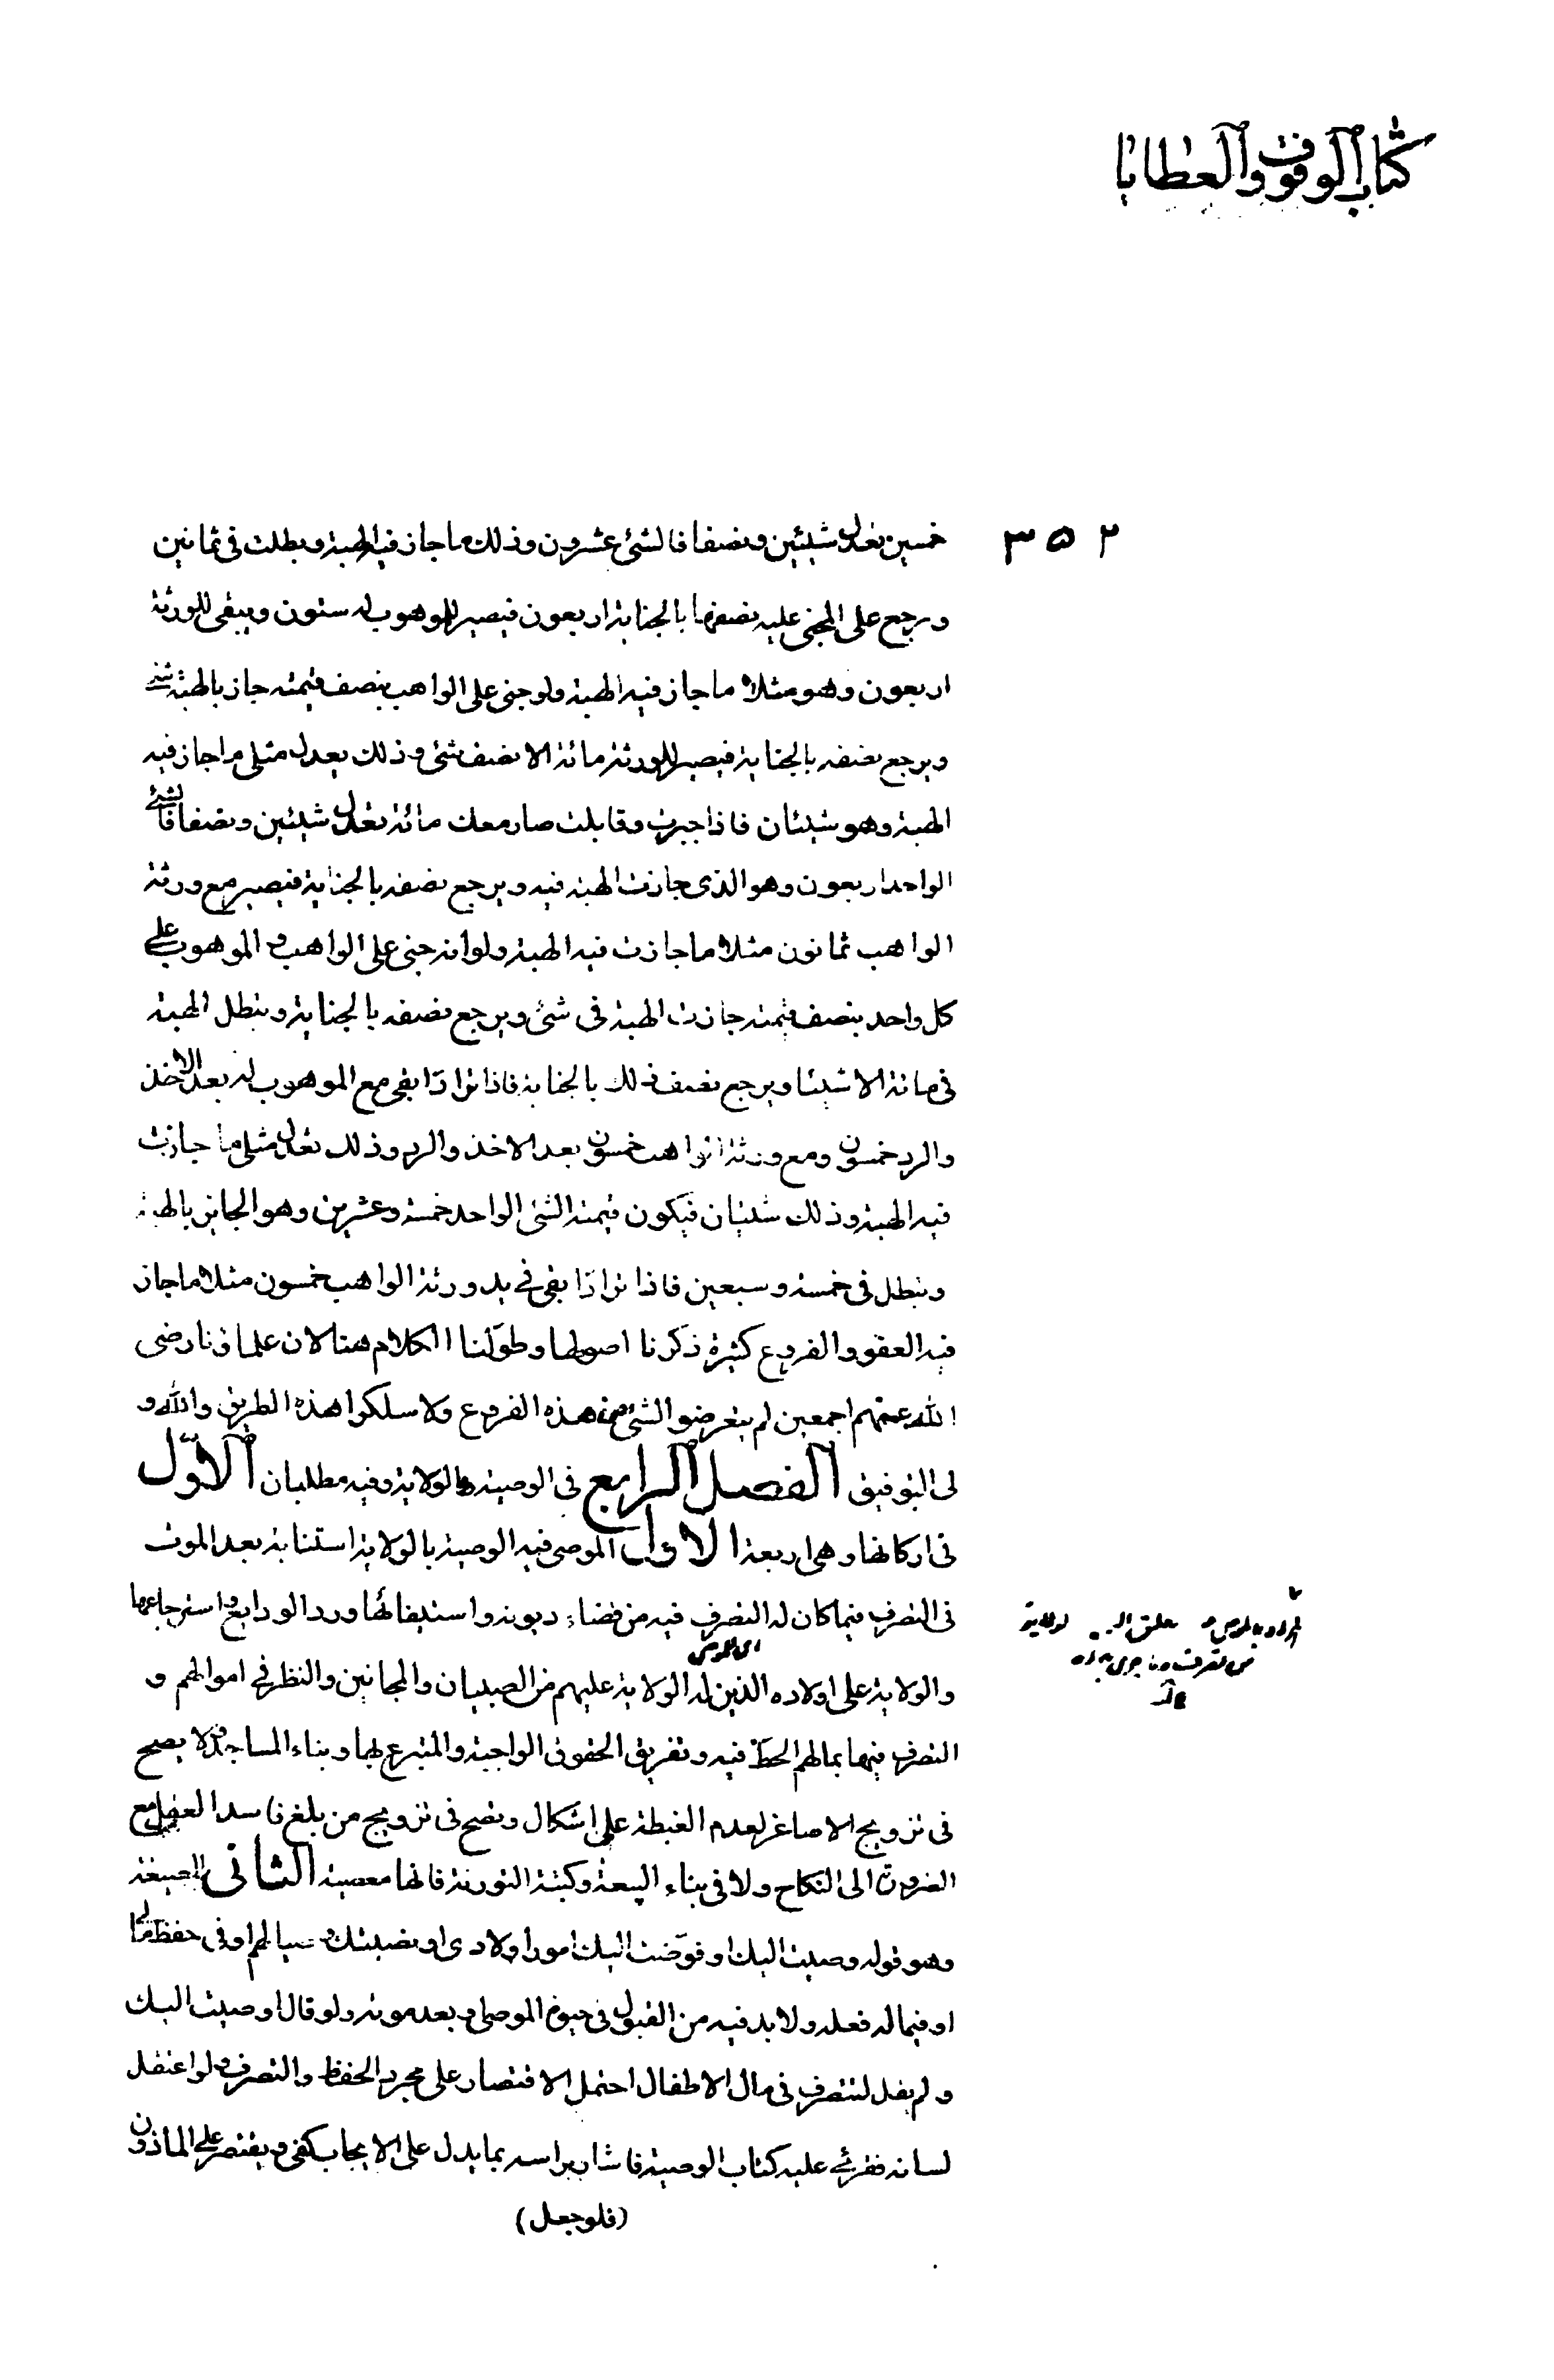 كتاب الوقوف والعطايا
٣٥٢
خمسين تعدل شيئين ونصفا فالشئ عشرون وذلك ما جاز فيه الهبة وبطلت فى ثمانين
ورجع على المجنى عليه نصفها بالجناية اربعون فيصير للموهوب له ستون ويبقى للورثة
اربعون وهو مثلا ما جاز فيه الهبة ولو جنى على الواهب بنصف قيمته جاز بالهبة شئ
ويرجع نصفه بالجناية فيصير للورثة مائة الا نصف شئ وذلك يعدل مثلى ما جاز فيه
الهبة وهو شيئان فاذا جبرت وقابلت صار معك مائة تعدل شيئين ونصفا فالشئ
الواحد اربعون وهو الذى جازت الهبة فيه ويرجع نصفه بالجناية فيصير مع ورثة
الواهب ثمانون مثلا ما جازت فيه الهبة ولو انه جنى على الواهب و الموهوب على
كل واحد بنصف قيمته جازت الهبة فى شئ ويرجع نصفه بالجناية وتبطل الهبة
فى مائة الا شيئا ويرجع نصف ذلك بالجناية فاذا ترادا بقى مع الموهوب له بعد الاخذ
والرد خمسون ومع ورثة الواهب خمسون بعد الاخذ والرد وذلك تعدل مثلى ما جازت
فيه الهبة وذلك شيئان فيكون قيمة الشئ الواحد خمسة وعشرين وهو الجايز بالهبة
وتبطل فى خمسة وسبعين فاذا ترادا بقى فى يد ورثة الواهب خمسون مثلا ما جاز
فيه العقد والفروع كثيرة ذكرنا اصولها وطولنا الكلام هنا لان علماؤنا رضى
الله عنهم اجمعين لم يتعرضوا لشئ من هذه الفروع ولا سلكوا هذه الطريق والله و
لى التوفيق الفصل الرابع فى الوصية بالولاية وفيه مطلبان الاول
فى اركانها وهى اربعة الاول الموصى فيه الوصية بالولاية استنابة بعد الموت
فى التصرف فيما كان له التصرف فيه من قضاء ديونه واستيفائها ورد الودايع واسترجاعها
والولاية على اولاده الذين له الولاية عليهم من الصبيان والمجانين والنظر فى اموالهم و
التصرف فيها بما لهم الحظ فيه وتفريق الحقوق الواجبة والمتبرع بها وبناء المساجد ولا يصح
فى تزويج الاصاغر لعدم الغبطة على اشكال وتصح فى تزويج من بلغ فاسد العقل مع
الضرورة الى النكاح ولا فى بناء البيعة وكتبة التورية فانها معصية الثانى الصيغة
وهو قوله وصيت اليك او فوضت اليك امور اولادى او نصبتك لهم او فى حفظ مالى
او فيما له فعله ولا بد فيه من القبول فى حيوة الموصى او بعد موته ولو قال اوصيت اليك
ولم يقل لتتصرف فى مال الاطفال احتمل الاقتصار على مجرد الحفظ والتصرف ولو اعتقل
لسانه فقرئ عليه كتاب الوصية فاشار براسه بما يدل على الايجاب كفى ويقتصر على الماذون
(فلو جعل)